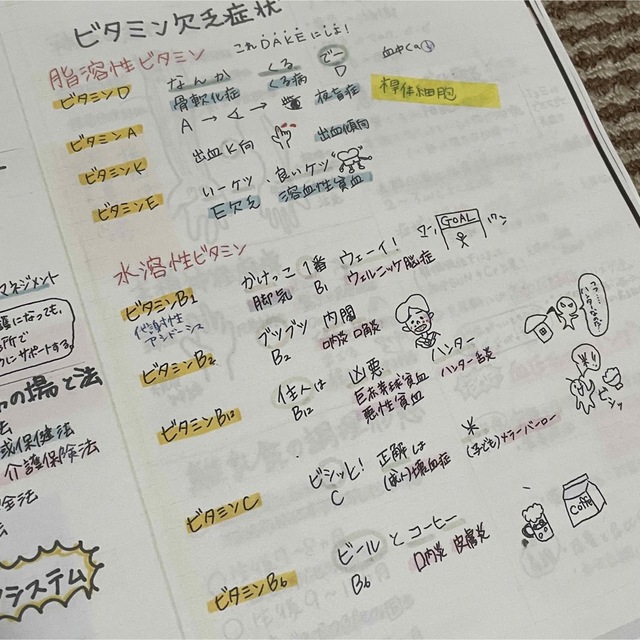 ビタミン欠乏症状
これDAKEにしよ!
脂溶性ビタミン
ビタミンD
なんか くる でー
骨軟化症 くる病 D
血中Ca↓
ビタミンA
A → ∢ →
夜盲症
桿体細胞
ビタミンK
出血K向
出血傾向
ビタミンE
いーケツ 良いケツ
E欠乏 溶血性貧血
水溶性ビタミン
ビタミンB1
かけっこ 1番 ウェーイ!
脚気 B1 ウェルニッケ脳症
GOAL
代謝性
アシドーシス
ビタミンB2
ブツブツ 内閣
B2 口内炎 口角炎
ビタミンB12
住人は 凶悪 ハンター
B12 巨赤芽球貧血 ハンター舌炎
悪性貧血
ビタミンC
ビシッと! 正解は
C (成人)壊血症 (子ども)メラーバーロー
ビタミンB6
ビール と コーヒー
B6 口内炎 皮膚炎
マネジメント
護になっても、
サポートする。
の場と法
法
保健法
介護保険法
法
システム